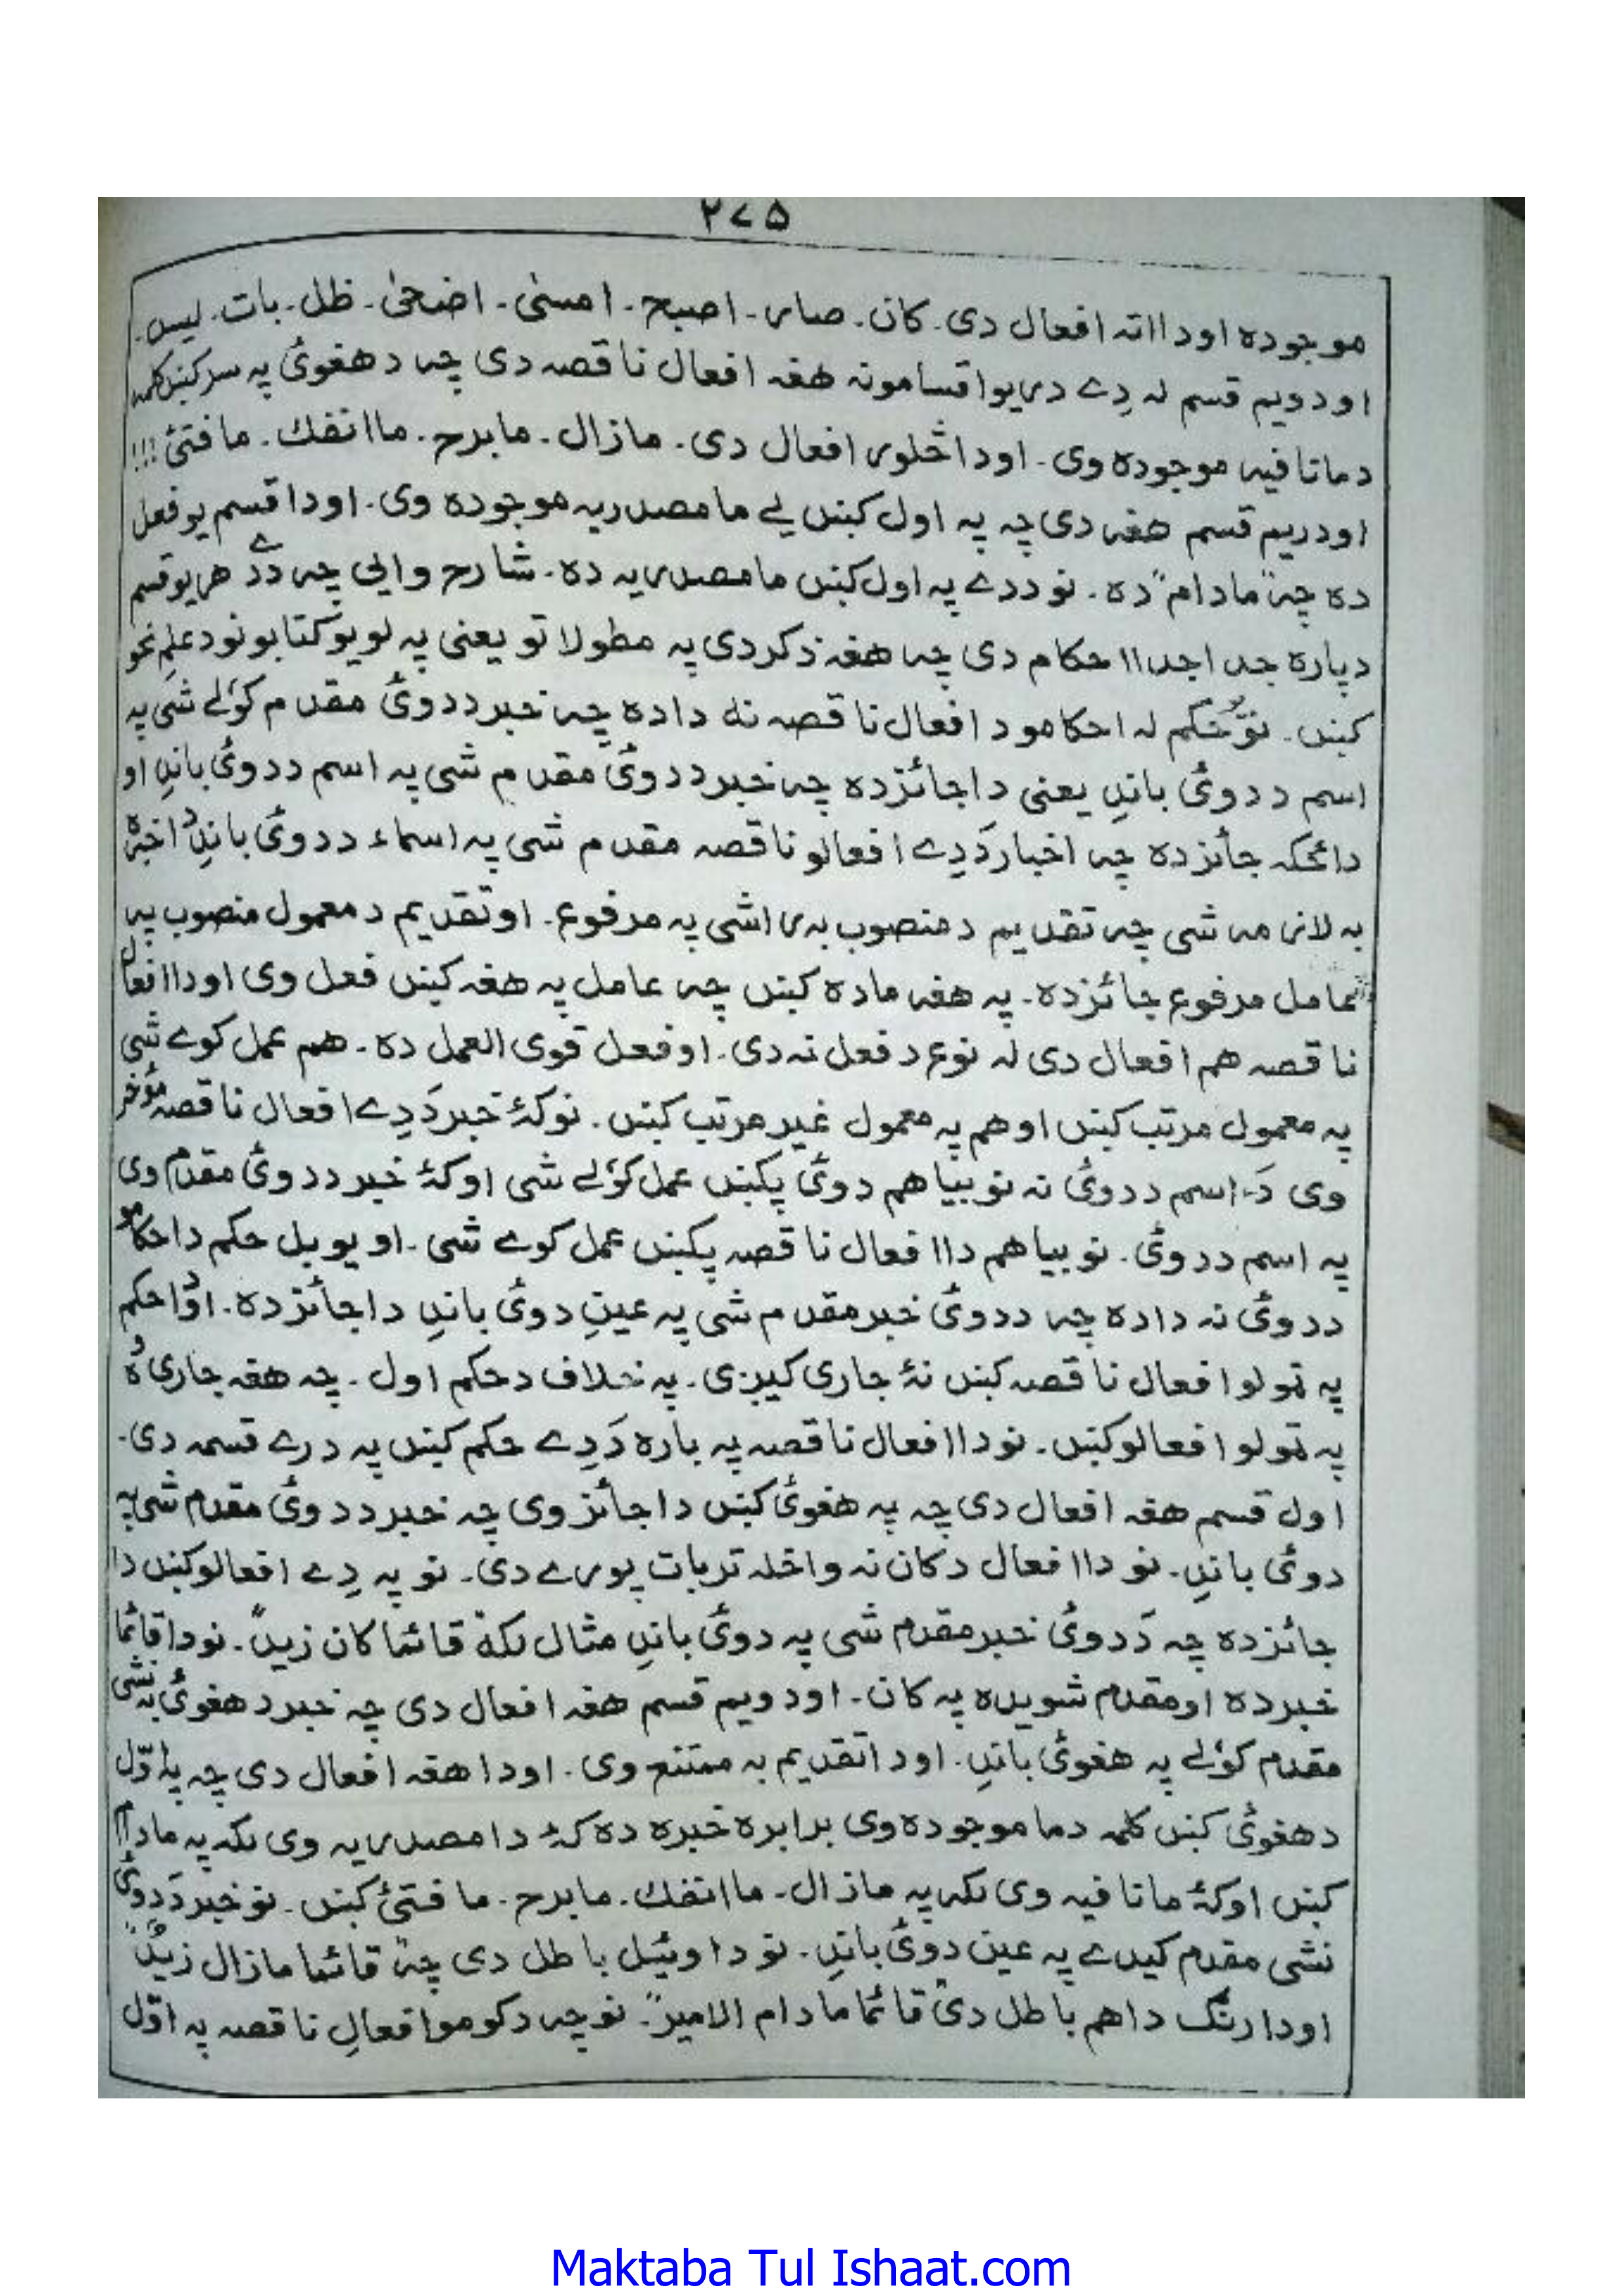 ٢٧٥
موجوده او دا اته افعال دی۔ کان۔ صار۔ اصبح۔ امسیٰ۔ اضحیٰ۔ ظل۔ بات۔ لیس۔
او دویم قسم لہ دِے دریو اقسامونہ هغہ افعال ناقصہ دی چہ د هغوئ پہ سر کښں کلمہ
د ما نافیہ موجوده وی۔ او دا څلور افعال دی۔ مازال۔ مابرح۔ ماانفك۔ مافتئ !!!
او دریم قسم هغہ دی چہ پہ اول کښں یے ما مصدریہ موجوده وی۔ او دا قسم یو فعل
ده چہ "مادام" ده۔ نو ددے پہ اول کښں ما مصدریہ ده۔ شارح وایي چہ دَدے هر یو قسم
دپاره جدا جدا احکام دی چہ هغہ ذکر دی پہ مطولاتو یعنی پہ لویو کتابونو د علم نحو
کښں۔ نو حکم لہ احکامو د افعال ناقصہ نه دا ده چہ خبر ددوئ مقدم کوٗلے شی پہ
اسم د دوئ باندِ یعنی دا جائز ده چہ خبر ددوئ مقدم شی پہ اسم ددوئ باندِ او
دا ځکہ جائز ده چہ اخبار دَدِے افعالو ناقصہ مقدم شی پہ اسماء ددوئ باندِ
بہ لازمہ شی چہ تقدیم د منصوب بہ راشی پہ مرفوع۔ او تقدیم د معمول منصوب پہ
عامل مرفوع جائز ده۔ پہ هغہ ماده کښں چہ عامل پہ هغہ کښں فعل وی او دا افعال
ناقصہ هم افعال دی لہ نوع د فعل نہ دی۔ او فعل قوی العمل ده۔ هم عمل کوے شی
پہ معمول مرتب کښں او هم پہ معمول غیر مرتب کښں۔ نو کہٗ خبر دَدِے افعال ناقصہ مؤخر
وی دَ اسم ددوئ نہ نو بیا هم دوئ پکښں عمل کوٗلے شی او کہٗ خبر ددوئ مقدم وی
پہ اسم ددوئ۔ نو بیا هم دا افعال ناقصہ پکښں عمل کوے شی۔ او یو بل حکم د احکامو
ددوئ نہ دا ده چہ ددوئ خبر مقدم شی پہ عینِ دوئ باندِ دا جائز ده۔ او دا حکم
پہ ټولو افعال ناقصہ کښں نہٗ جاری کیږی۔ پہ خلاف د حکم اول۔ چہ هغہ جاری وٗه
پہ ټولو افعالو کښں۔ نو دا افعال ناقصہ پہ باره دَدِے حکم کښں پہ درے قسمہ دی۔
اول قسم هغہ افعال دی چہ پہ هغوئ کښں دا جائز وی چہ خبر ددوئ مقدم شی پہ
دوئ باندِ۔ نو دا افعال د کان نہ واخلہ تر بات پورے دی۔ نو پہ دِے افعالو کښں دا
جائز ده چہ دَدوئ خبر مقدم شی پہ دوئ باندِ مثال لکہ "قائما کان زید"۔ نو دا قائما
خبر ده او مقدم شویده پہ کان۔ او دویم قسم هغہ افعال دی چہ خبر د هغوئ بہ نشی
مقدم کوٗلے پہ هغوئ باندِ۔ او دا تقدیم بہ ممتنع وی۔ او دا هغہ افعال دی چہ پہ اوّل
د هغوئ کښں کلمہ د ما موجوده وی برابره خبره ده کہٗ دا مصدریہ وی لکہ پہ مادام
کښں او کہٗ ما نافیہ وی لکہ پہ مازال۔ ماانفك۔ مابرح۔ مافتئ کښں۔ نو خبر دَدوئ
نشی مقدم کیدے پہ عین دوئ باندِ۔ نو دا وئیل باطل دی چہ "قائما مازال زید"
او دا رنګ دا هم باطل دی "قائما مادام الامیر"۔ نو چہ د کومو افعالِ ناقصہ پہ اوّل
Maktaba Tul Ishaat.com